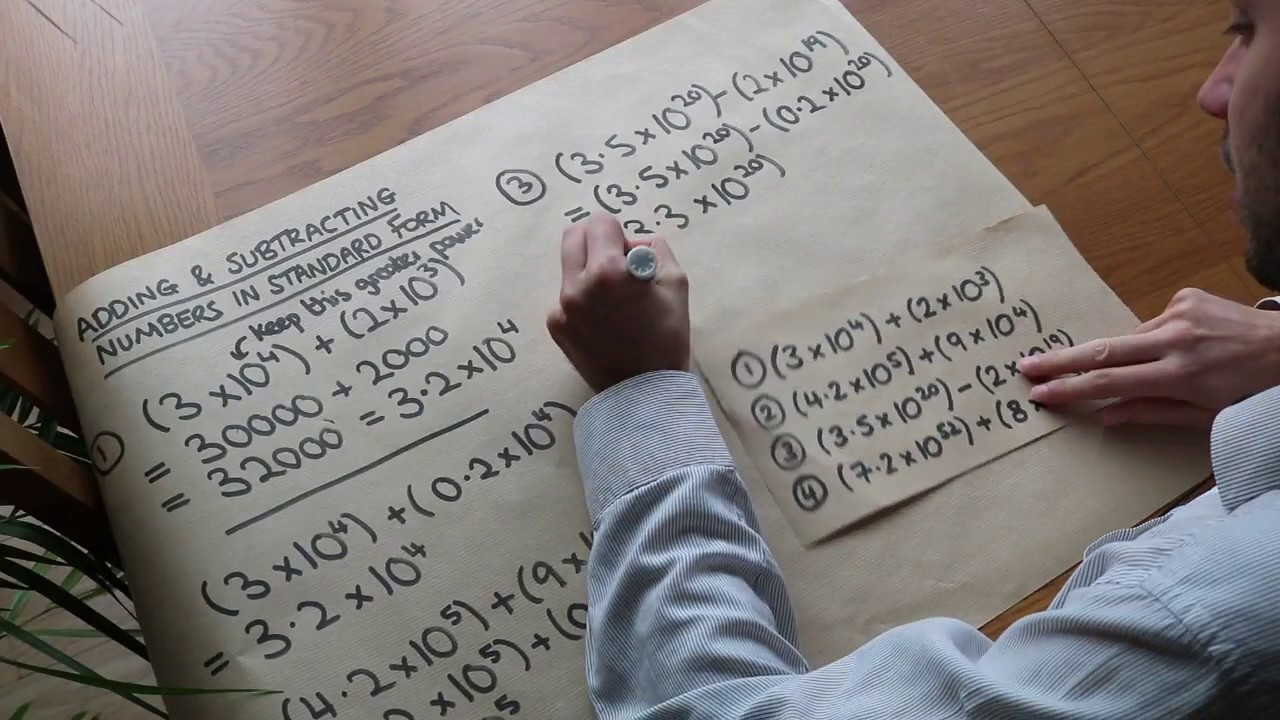 ADDING & SUBTRACTING
NUMBERS IN STANDARD FORM
keep this greater power
① (3 × 10⁴) + (2×10³)
= 30000 + 2000
= 32000 = 3.2 × 10⁴
(3 × 10⁴) + (0.2 × 10⁴)
= 3.2 × 10⁴
(4.2 × 10⁵) + (9 ×
× 10⁵) + (0
③ (3.5 × 10²⁰) - (2 × 10¹⁹)
= (3.5 × 10²⁰) - (0.2 × 10²⁰)
.3 × 10²⁰)
① (3 × 10⁴) + (2 × 10³)
② (4.2 × 10⁵) + (9 × 10⁴)
③ (3.5 × 10²⁰) - (2 × 10¹⁹)
④ (7.2 × 10⁵²) + (8 ×